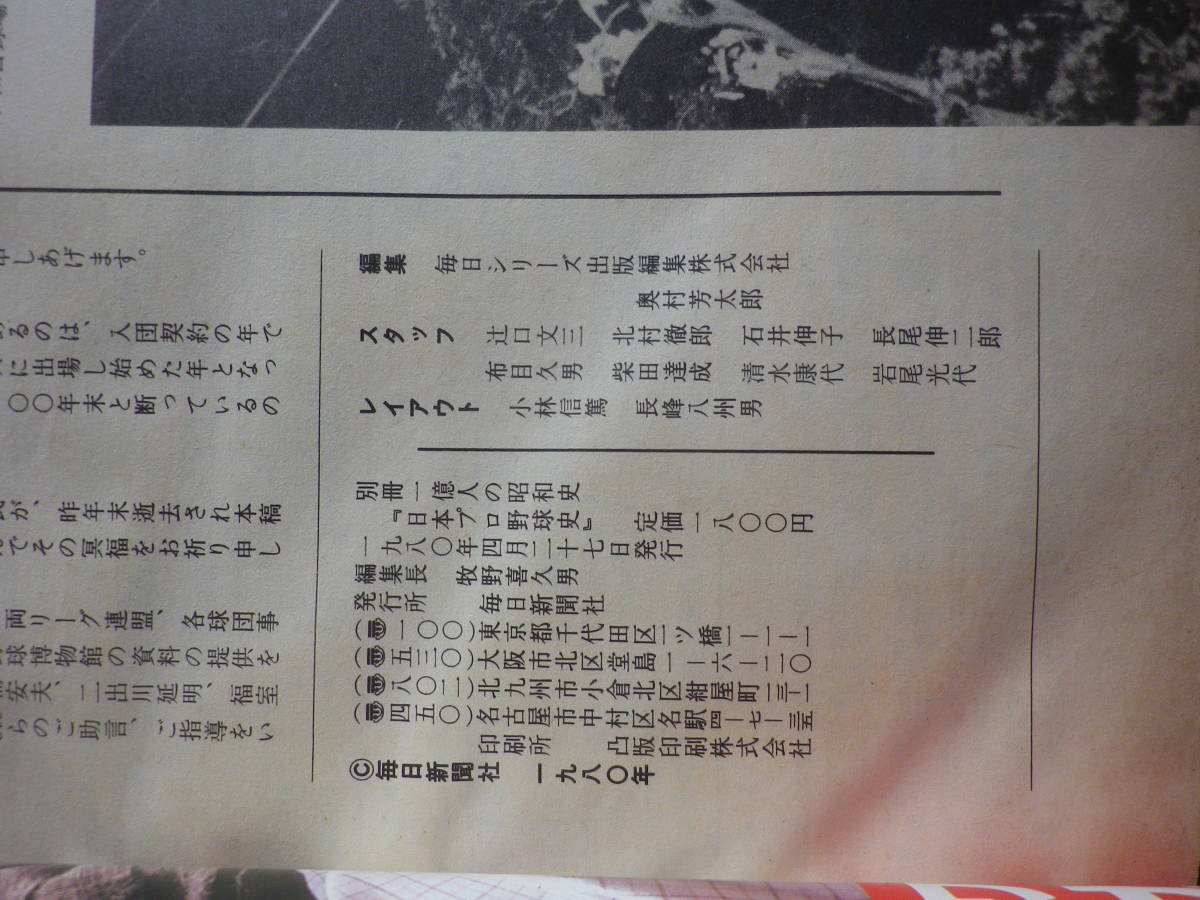 しあげます。
るのは、入団契約の年で
に出場し始めた年となっ
〇〇年末と断っているの
が、昨年末逝去され本稿
でその冥福をお祈り申し
両リーグ連盟、各球団事
球博物館の資料の提供を
安夫、二出川延明、福室
らのご助言、ご指導をい
編集 毎日シリーズ出版編集株式会社
奥村芳太郎
スタッフ 辻口文三 北村徹郎 石井伸子 長尾伸二郎
布目久男 柴田達成 清水康代 岩尾光代
レイアウト 小林信篤 長峰八州男
別冊一億人の昭和史
『日本プロ野球史』 定価一八〇〇円
一九八〇年四月二十七日発行
編集長 牧野喜久男
発行所 毎日新聞社
(〠一〇〇)東京都千代田区一ツ橋一ー一ー一
(〠五三〇)大阪市北区堂島一ー六ー二〇
(〠八〇二)北九州市小倉北区紺屋町一三ー一
(〠四五〇)名古屋市中村区名駅四ー七ー三五
印刷所 凸版印刷株式会社
©毎日新聞社 一九八〇年